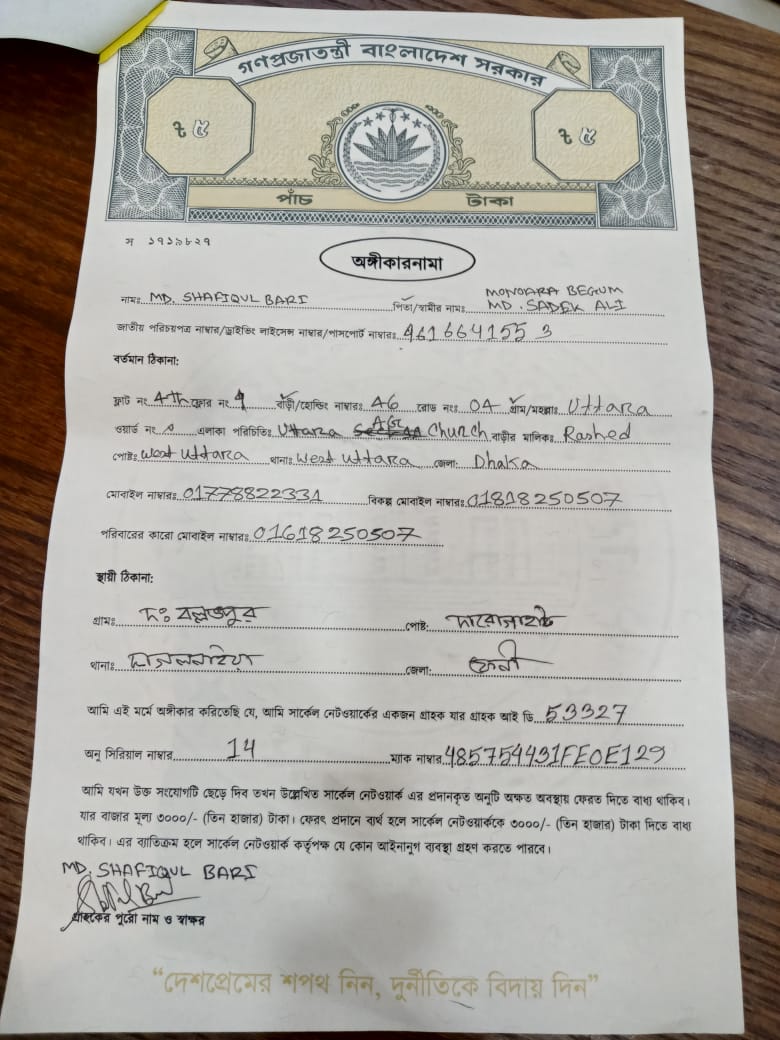 গণপ্রজাতন্ত্রী বাংলাদেশ সরকার
৳ ৫
৳ ৫
পাঁচ টাকা
স ১৭১৯৮২৭
অঙ্গীকারনামা
নামঃ MD. SHAFIQUL BARI পিতা/স্বামীর নামঃ MONOARA BEGUM
MD. SADEK ALI
জাতীয় পরিচয়পত্র নাম্বার/ড্রাইভিং লাইসেন্স নাম্বার/পাসপোর্ট নাম্বারঃ 461664155 3
বর্তমান ঠিকানা:
ফ্লাট নং 4th ফ্লোর নং 4 বাড়ী/হোল্ডিং নাম্বারঃ 46 রোড নংঃ 04 গ্রাম/মহল্লাঃ Uttara
ওয়ার্ড নং এলাকা পরিচিতিঃ Uttara AG Church বাড়ীর মালিকঃ Rashed
পোষ্টঃ West Uttara থানাঃ West Uttara জেলা: Dhaka
মোবাইল নাম্বারঃ 01778822331 বিকল্প মোবাইল নাম্বারঃ 01818250507
পরিবারের কারো মোবাইল নাম্বারঃ 01618250507
স্থায়ী ঠিকানা:
গ্রামঃ দঃ বল্লভপুর পোষ্ট: দারোগাহাট
থানাঃ ছাগলনাইয়া জেলা: ফেনী
আমি এই মর্মে অঙ্গীকার করিতেছি যে, আমি সার্কেল নেটওয়ার্কের একজন গ্রাহক যার গ্রাহক আই ডি 53327
অনু সিরিয়াল নাম্বার 14 ম্যাক নাম্বার 485754431FE0E129
আমি যখন উক্ত সংযোগটি ছেড়ে দিব তখন উল্লেখিত সার্কেল নেটওয়ার্ক এর প্রদানকৃত অনুটি অক্ষত অবস্থায় ফেরত দিতে বাধ্য থাকিব।
যার বাজার মূল্য ৩০০০/- (তিন হাজার) টাকা। ফেরৎ প্রদানে ব্যর্থ হলে সার্কেল নেটওয়ার্ককে ৩০০০/- (তিন হাজার) টাকা দিতে বাধ্য
থাকিব। এর ব্যতিক্রম হলে সার্কেল নেটওয়ার্ক কর্তৃপক্ষ যে কোন আইনানুগ ব্যবস্থা গ্রহণ করতে পারবে।
MD. SHAFIQUL BARI
গ্রাহকের পুরো নাম ও স্বাক্ষর
“দেশপ্রেমের শপথ নিন, দুর্নীতিকে বিদায় দিন”